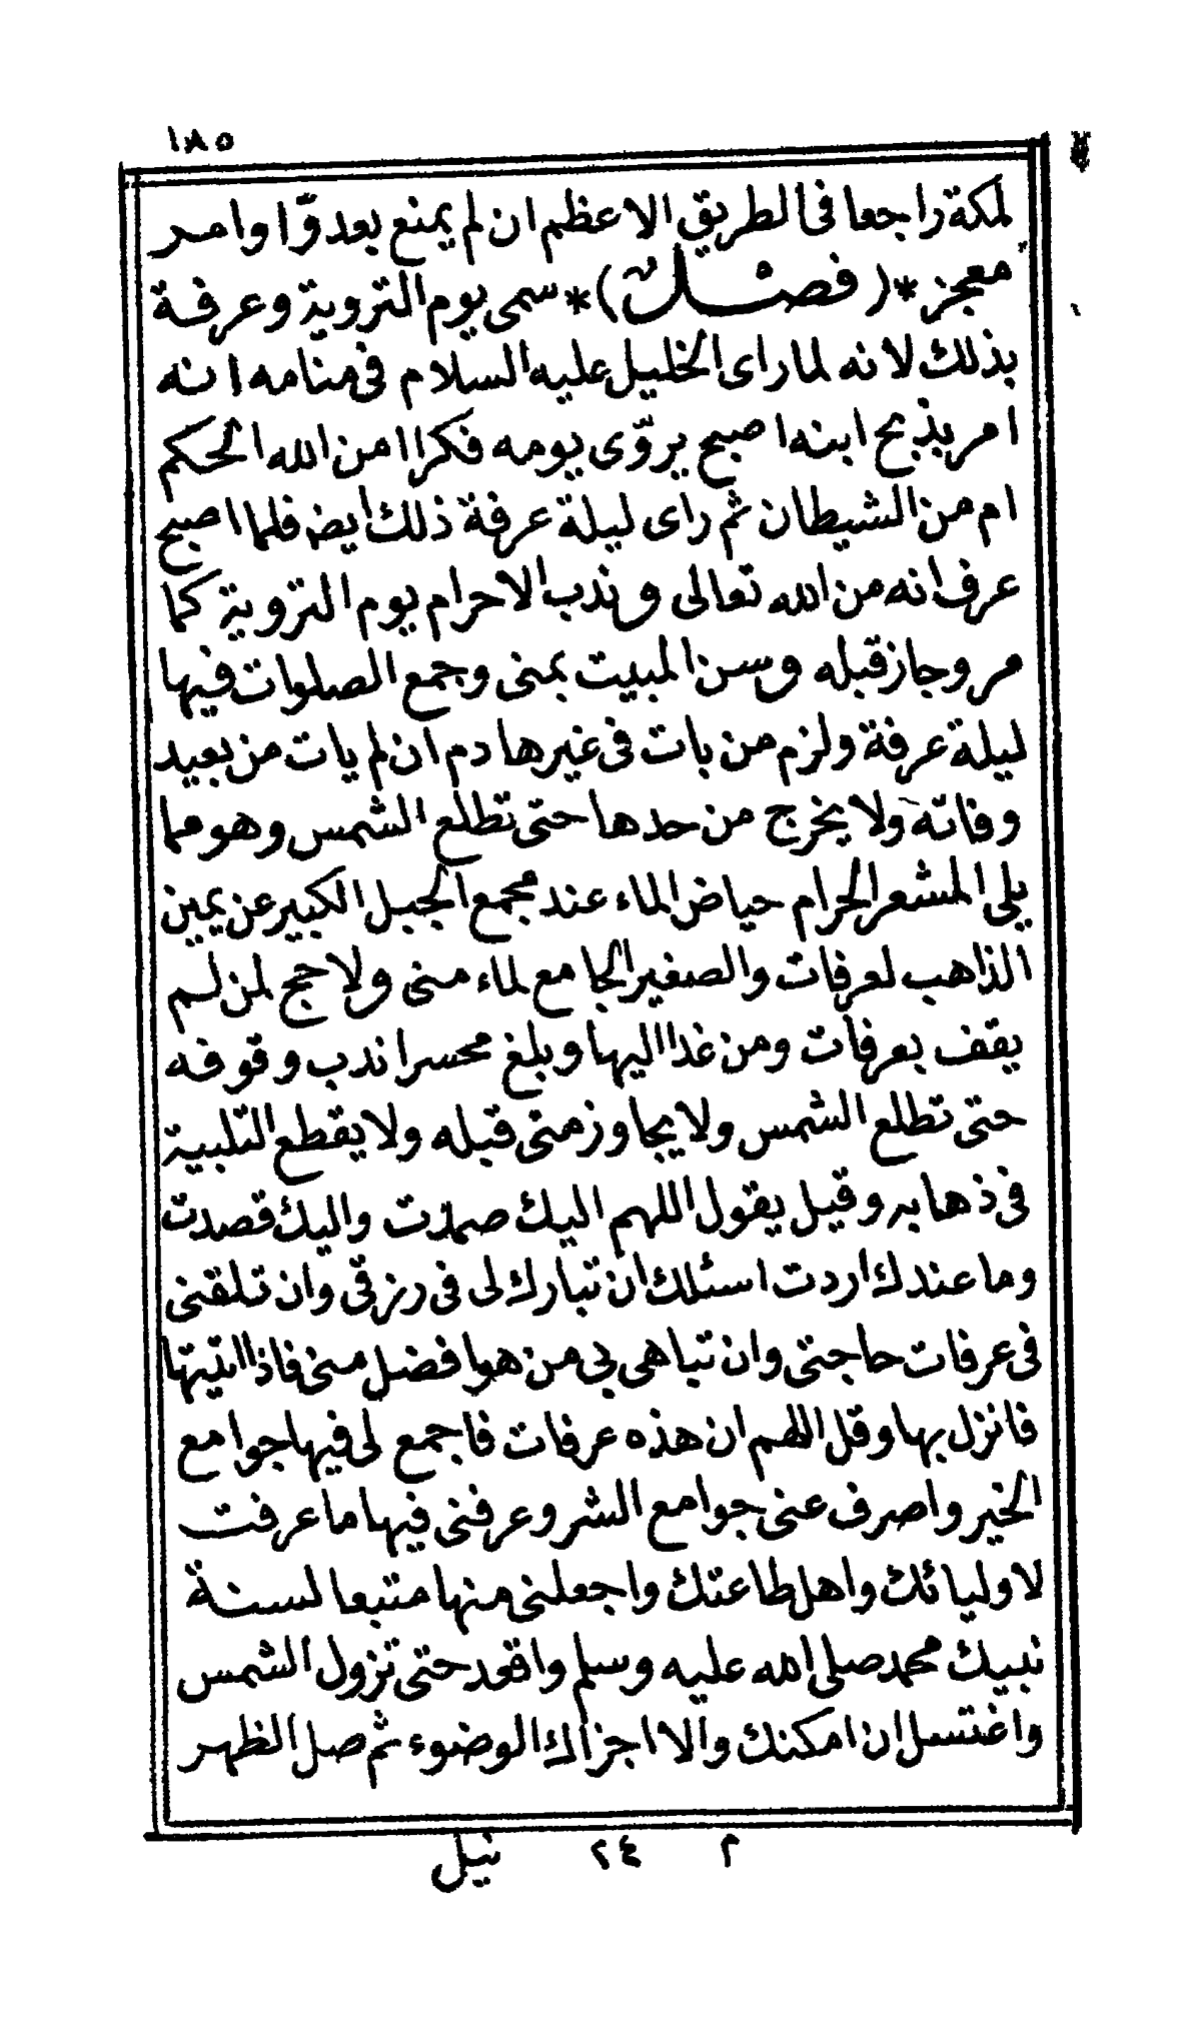 ١٨٥
لمكة راجعا فى الطريق الاعظم ان لم يمنع بعدوّ او امر
معجز *( فصل )* سمى يوم التروية وعرفة
بذلك لانه لما راى الخليل عليه السلام فى منامه انه
امر بذبح ابنه اصبح يروّى يومه فكرا امن الله الحكم
ام من الشيطان ثم راى ليلة عرفة ذلك ايض فلما اصبح
عرف انه من الله تعالى وندب الاحرام يوم التروية كما
مر وجاز قبله وسن المبيت بمنى وجمع الصلوات فيها
ليلة عرفة ولزم من بات فى غيرها دم ان لم يات من بعيد
وفاته ولا يخرج من حدها حتى تطلع الشمس وهو مما
يلى المشعر الحرام حياض الماء عند مجمع الجبل الكبير عن يمين
الذاهب لعرفات والصغير الجامع لماء منى ولا حج لمن لم
يقف بعرفات ومن غدا اليها وبلغ محسرا ندب وقوفه
حتى تطلع الشمس ولا يجاوز متى قبله ولا يقطع التلبية
فى ذهابه وقيل يقول اللهم اليك صمدت واليك قصدت
وما عندك اردت اسئلك ان تبارك لى فى رزقى وان تلقنى
فى عرفات حاجتى وان تباهى بى من هو افضل منى فاذا اتيتها
فانزل بها وقل اللهم ان هذه عرفات فاجمع لى فيها جوامع
الخير واصرف عنى جوامع الشر وعرفنى فيها ما عرفت
لاوليائك واهل طاعتك واجعلنى منها متبعا لسنة
نبيك محمد صلى الله عليه وسلم واقعد حتى تزول الشمس
واغتسل ان امكنك والا اجزاك الوضوء ثم صل الظهر
م ٢٤ نيل